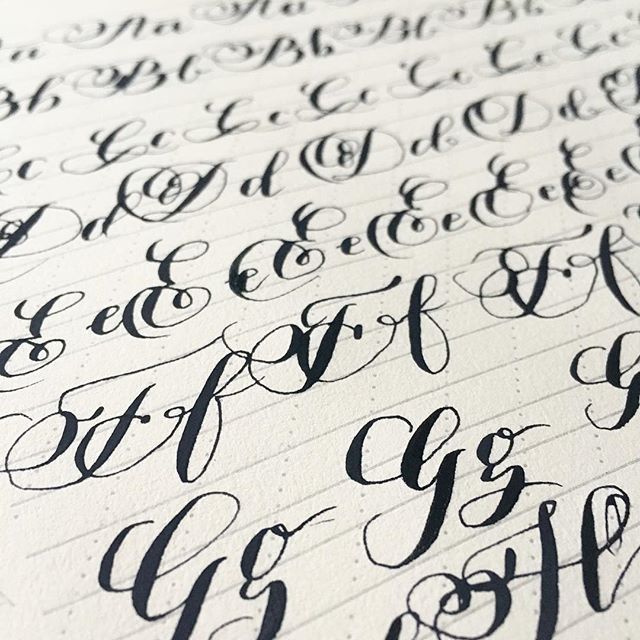 a A a A a
B b B b B b B b B b
c C c C c C c C c C c C
D d D d D d D d
E e E e E e E e E e
F f F f F f
G g G g G
H